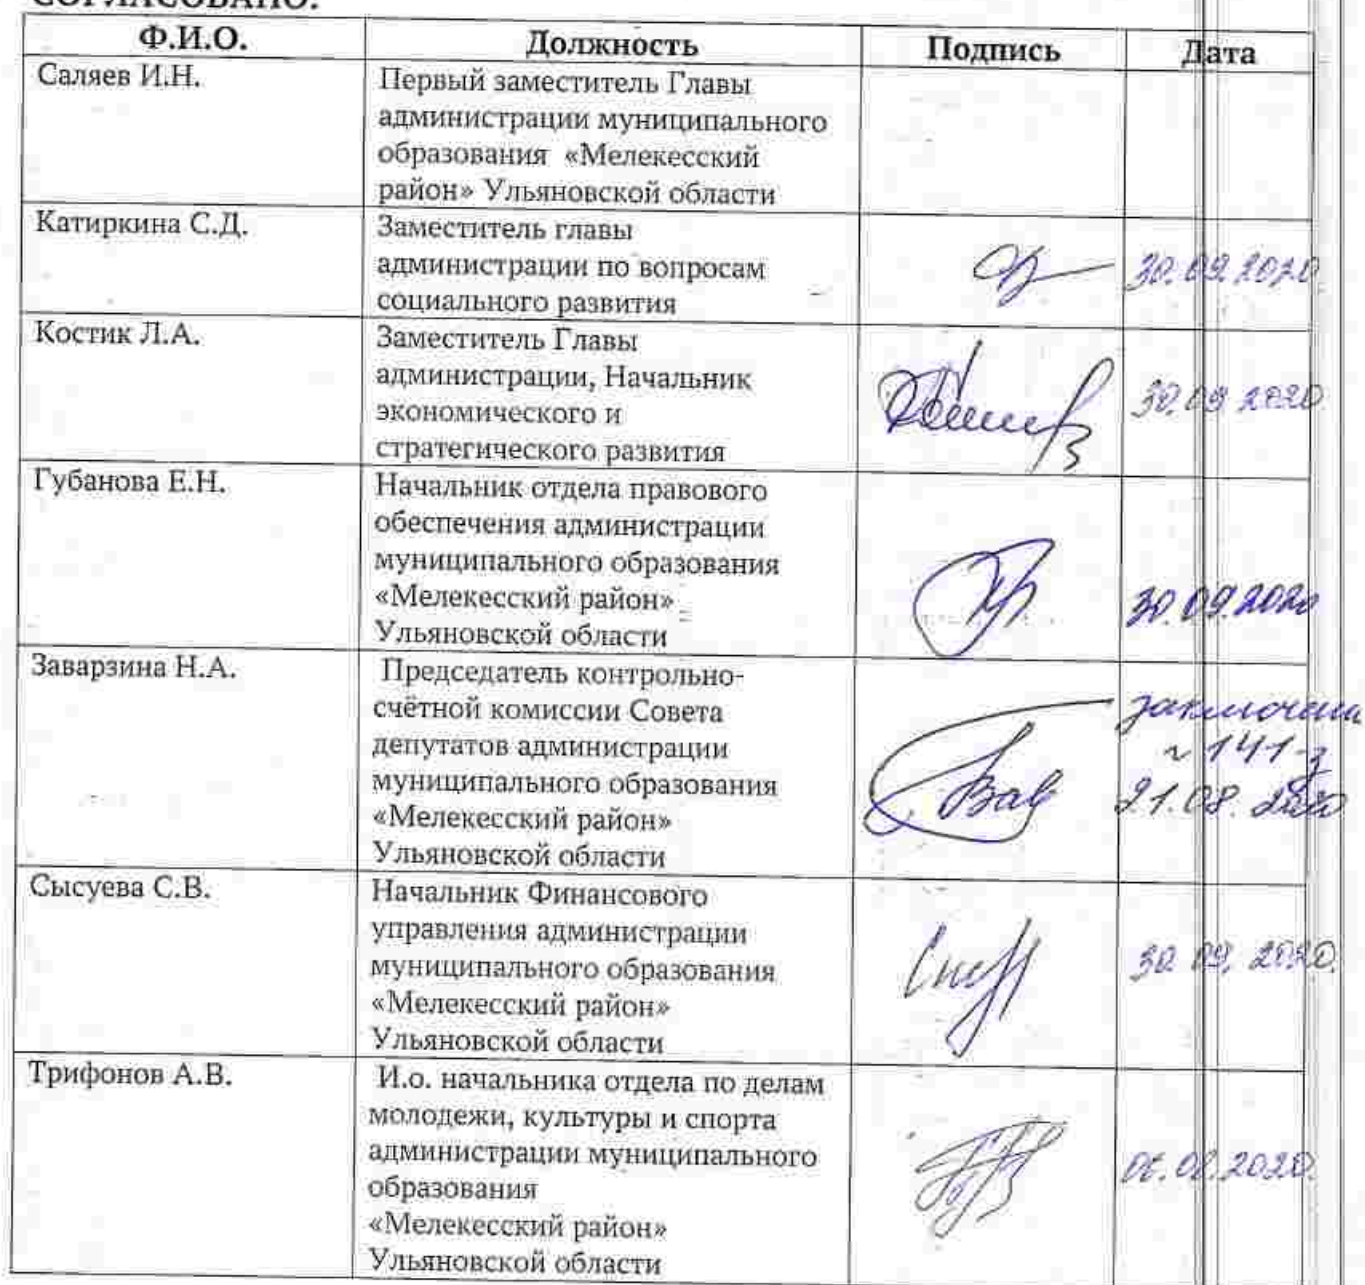 СОГЛАСОВАНО:
Ф.И.О. Должность Подпись Дата
Саляев И.Н. Первый заместитель Главы
администрации муниципального
образования «Мелекесский
район» Ульяновской области
Катиркина С.Д. Заместитель главы
администрации по вопросам
социального развития
30.09.2020.
Костик Л.А. Заместитель Главы
администрации, Начальник
экономического и
стратегического развития
30.09.2020
Губанова Е.Н. Начальник отдела правового
обеспечения администрации
муниципального образования
«Мелекесский район»
Ульяновской области
30.09.2020
Заварзина Н.А. Председатель контрольно-
счётной комиссии Совета
депутатов администрации
муниципального образования
«Мелекесский район»
Ульяновской области
141-з
21.08.2020
Сысуева С.В. Начальник Финансового
управления администрации
муниципального образования
«Мелекесский район»
Ульяновской области
30.09.2020.
Трифонов А.В. И.о. начальника отдела по делам
молодежи, культуры и спорта
администрации муниципального
образования
«Мелекесский район»
Ульяновской области